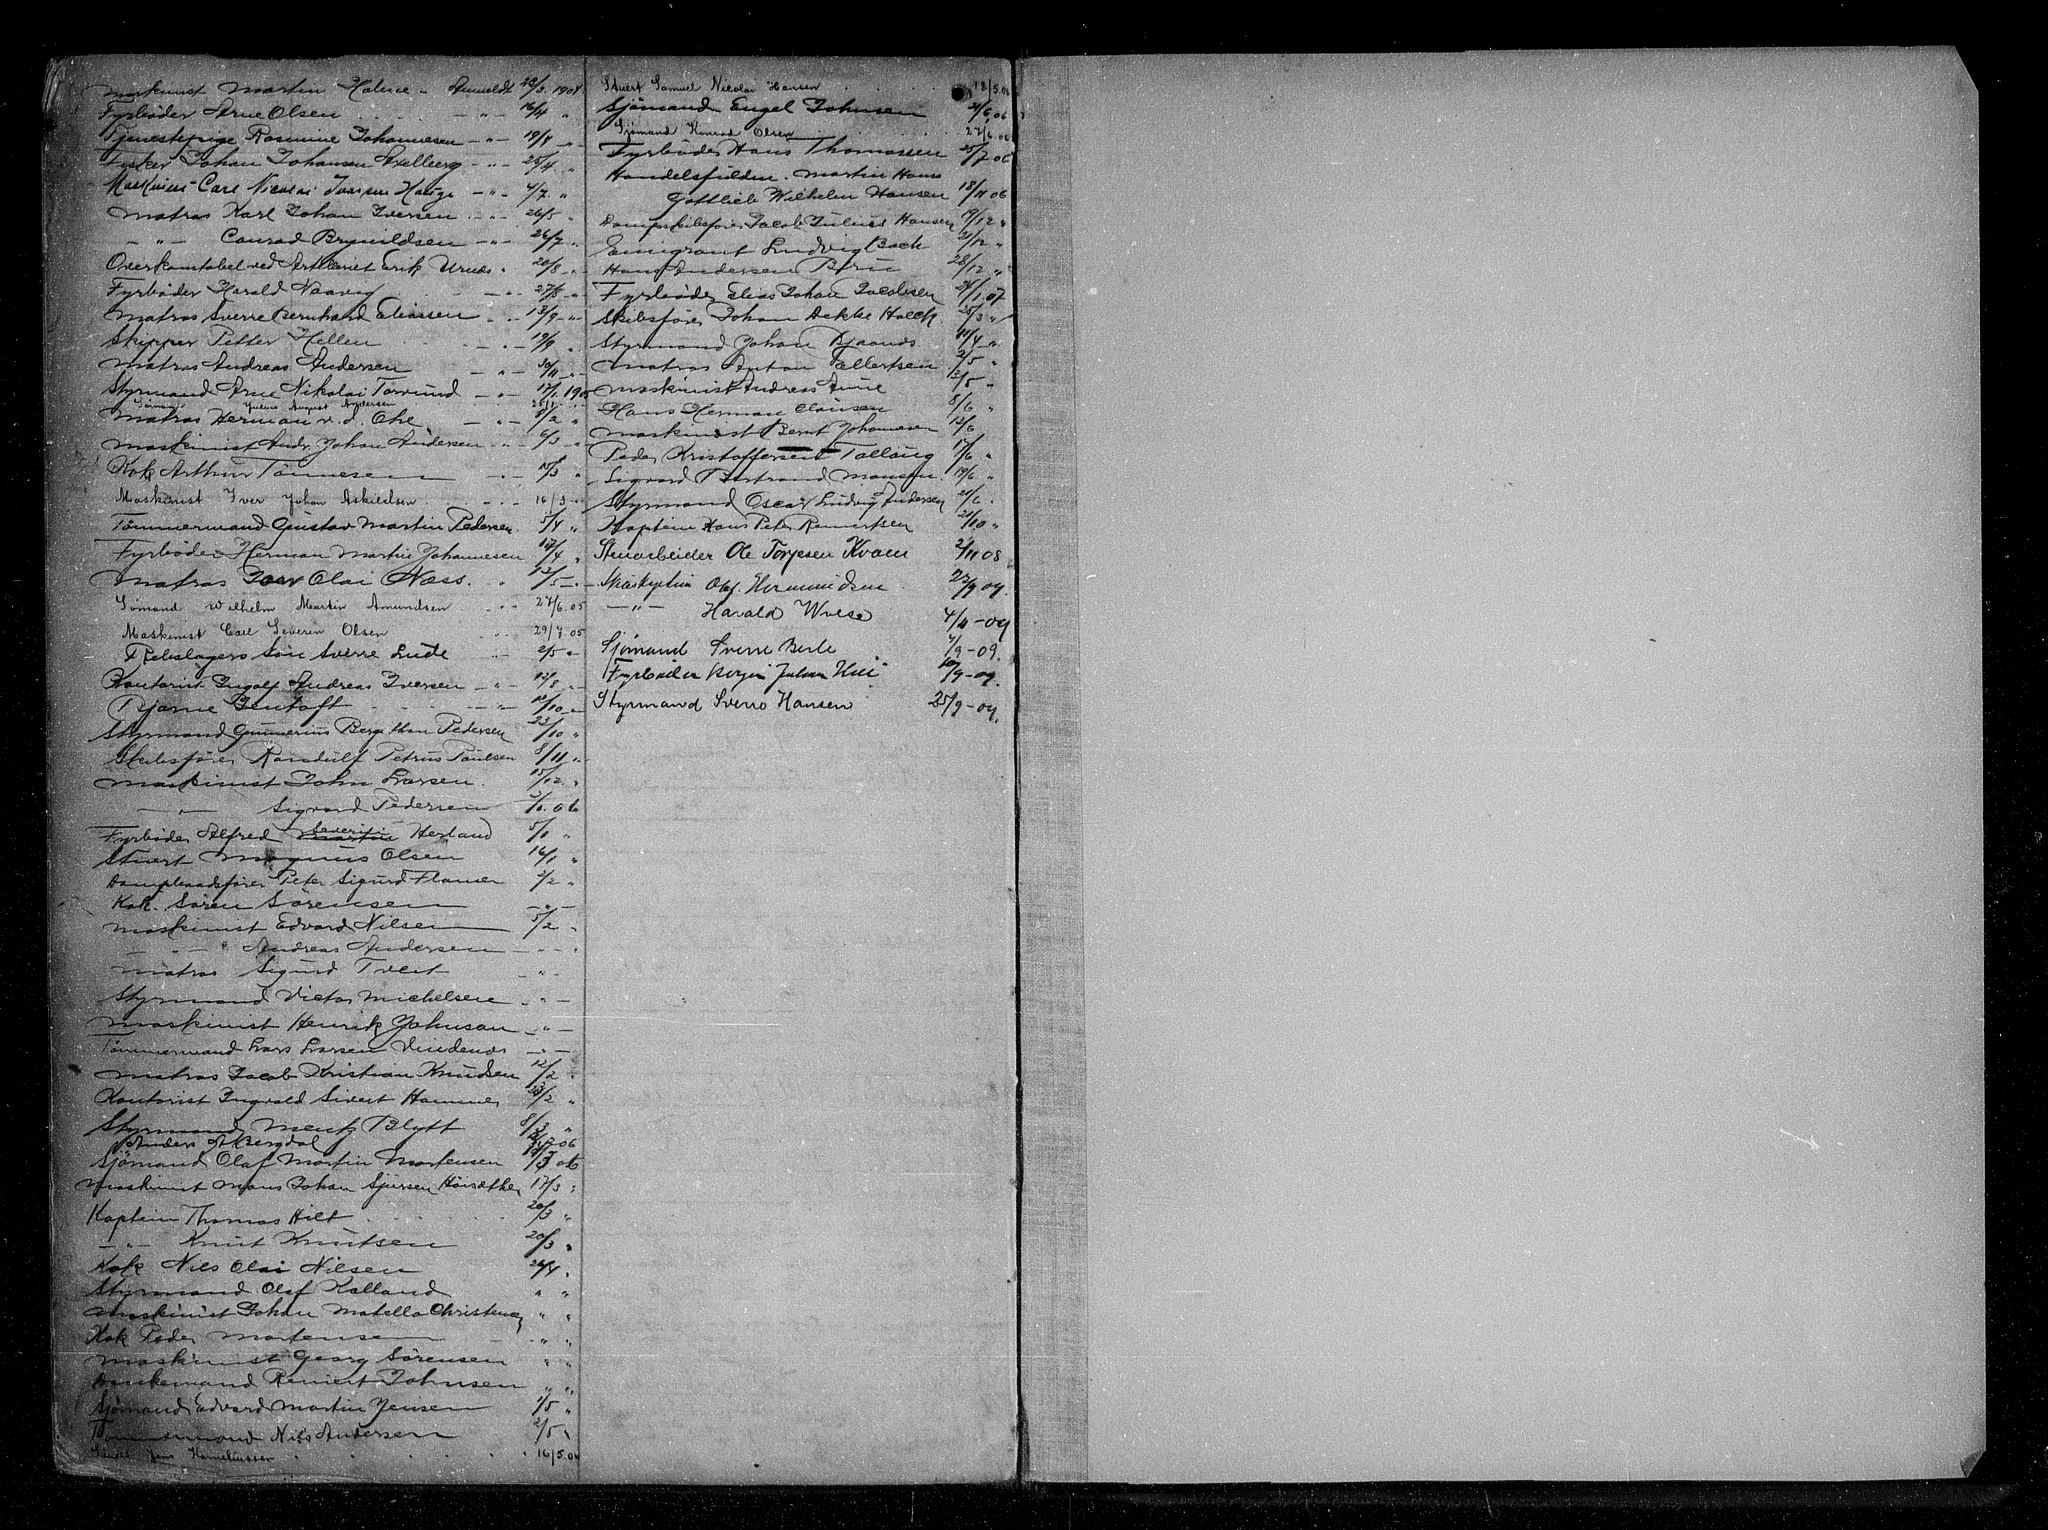 Maskinist Martin Halme - Anmeldt 28/3. 1904
Fyrbøder Arne Olsen - " - 16/4 "
Tjenestepige Rasmine Johannesen - " - 19/8 - " -
Fisker Johan Johansen Axelberg - " - 25/4. "
Maskinist Carl Nicolai Iversen Hauge - " - 4/7. "
Matros Karl Johan Iversen 26/5 "
- " - Conrad Brynildsen - " - 26/7 "
Overkonstabel ved Artileriet Erik Urnes " 20/8 - " -
Fyrbøder Harald Naavig - " - 27/8 "
Matros Sverre Bernhard Eliassen 13/9 - " -
Skipper Petter Hellen - " - 19/9
Matros Andreas Andersen - " - 30/11 "
Styrmand Arne Nikolai Torvund - " - 17/1. 1905
Julius August Andersen 25/1
Matros Herman v. d. Ohe. - " - 8/2 "
Maskinist Andr. Johan Andersen - " - 6/3 - " -
Kok Arthur Tønnesen 15/3 "
Maskinist Iver Johan Askildsen 16/3 - " -
Tømmermand Gustav Martin Pedersen. 5/4 "
Fyrbøder Herman Martin Johannesen 17/4 "
Matros Olai Næss. 12/5 - " -
Sømand Wilhelm Martin Amundsen 27/6. 05
Maskinist Carl Severin Olsen 29/7. 05
Rebslagers Søn Sverre Lude 2/5 "
Kontorist Ingolf Andreas Iversen - " - 12/8 "
Bjarne Gentoft 12/10 "
Styrmand Gunnerius Bergithon Pedersen 23/10 "
Skibsfører Randulf Petrus Paulsen 8/11 "
Maskinist John Larsen. 15/12. "
- " - Sigvard Pedersen 2/1. 06
Fyrbøder Alfred Severin Herland 5/1 "
Stuert Magnus Olsen 16/1 "
Dampbaadsfører Peter Sigurd Flamer 2/2 "
Kok. Søren Sørensen - " -
Maskinist Edvard Nilsen 5/2 "
- " - Andreas Andersen - " -
Matros Sigurd Tveit - " -
Styrmand Victor Michelsen - " -
Maskinist Henrik Johnson - " -
Tømmermand Lars Larsen Vindenes - " -
Matros Jacob Kristian Knudsen 12/2 "
Kontorist Ingvald Sivert Hammer 23/2 "
Styrmand Mentz Blytt 8/3 "
Anders A Bergdal 06
Sjømand Olaf Martin Mortensen 13/3 06
Maskinist Mons Johan Sjursen 17/3 "
Kaptein Thomas Hilt 20/3 "
- " - Knut Knutsen 20/3 "
Kok Nils Olai Nilsen 26/4 "
Styrmand Olaf Kalland " "
Maskinist Johan Matello Christensen " "
Kok Peder Mortensen " "
Maskinist Georg Sørensen " "
Reinert Johnsen " "
Sjømand Edvard Martin Jensen 1/5 "
Tømmermand Nils Andersen 2/5 "
Jens Korneliussen 16/5. 06
Stuert Samuel Nicolai Hansen 18/5. 06
Sjømand Engel Johnsen 21/6. 06
Sjømand Konrad Olsen 27/6. 06
Fyrbøder Hans Thomassen 25/7 06
Handelsfuldm. Martin Hans
Gottlieb Wilhelm Hansen 18/11 06
Dampskibsfører Jacob Julius Hansen 19/12 "
Emigrant Ludvig Bach 21/12 "
Hans Andersen Brun 28/12 "
Fyrbøder Elias Johan Jacobsen 24/1. 07
Skibsfører Johan Dekke Holck. 25/3 "
Styrmand Johan Djaands 11/4 "
Matros Anton Tallertsen 2/5 "
Maskinist Andreas Aune 13/5 "
Hans Herman Clausen 8/6 "
Maskinist Bernt Johannesen 13/6
Peder Kristoffersen Tallaug 17/6 "
Sigvard Bertrand Monsen. 19/6 "
Styrmand Oscar Ludvig Andersen 20/6.
Kaptein Hans Peter Reinertsen 21/10 "
Stenarbeider Ole Torjesen Kvam 2/11 08
Olaf Hermundsen 23/9 09.
- " - Harald Wiese 4/4 - 09
Sjømand Sverre Berle 7/9 - 09.
Fyrbøder Johan 10/9 - 09.
Styrmand Sverre Hansen 25/9 - 09.